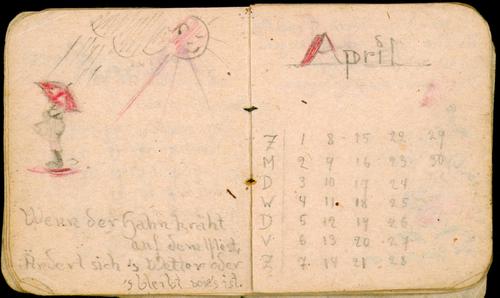 Wenn der Hahn kräht
auf dem Mist,
Ändert sich 's Wetter oder
's bleibt wie's ist.
April
Z 1 8 15 22 29
M 2 9 16 23 30
D 3 10 17 24
W 4 11 18 25
D 5 12 19 26
V 6 13 20 27
Z 7 14 21 28